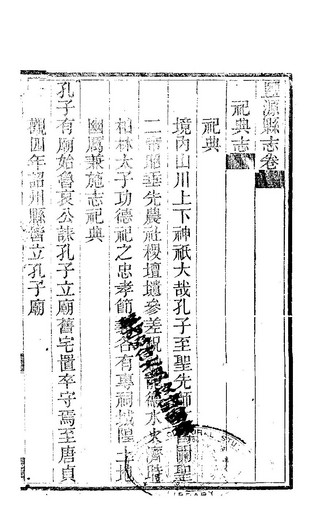 豐源縣志卷
祀典志
祀典
境內山川上下神祇大哉孔子至聖先師 關聖
二帝昭垂先農社稷壇壝參差祝 德水火濟時
柏林太子功德祀之忠孝節 各有專祠城隍土地
幽厲兼施志祀典
孔子有廟始魯哀公誄孔子立廟舊宅置卒守焉至唐貞
觀四年詔州縣皆立孔子廟